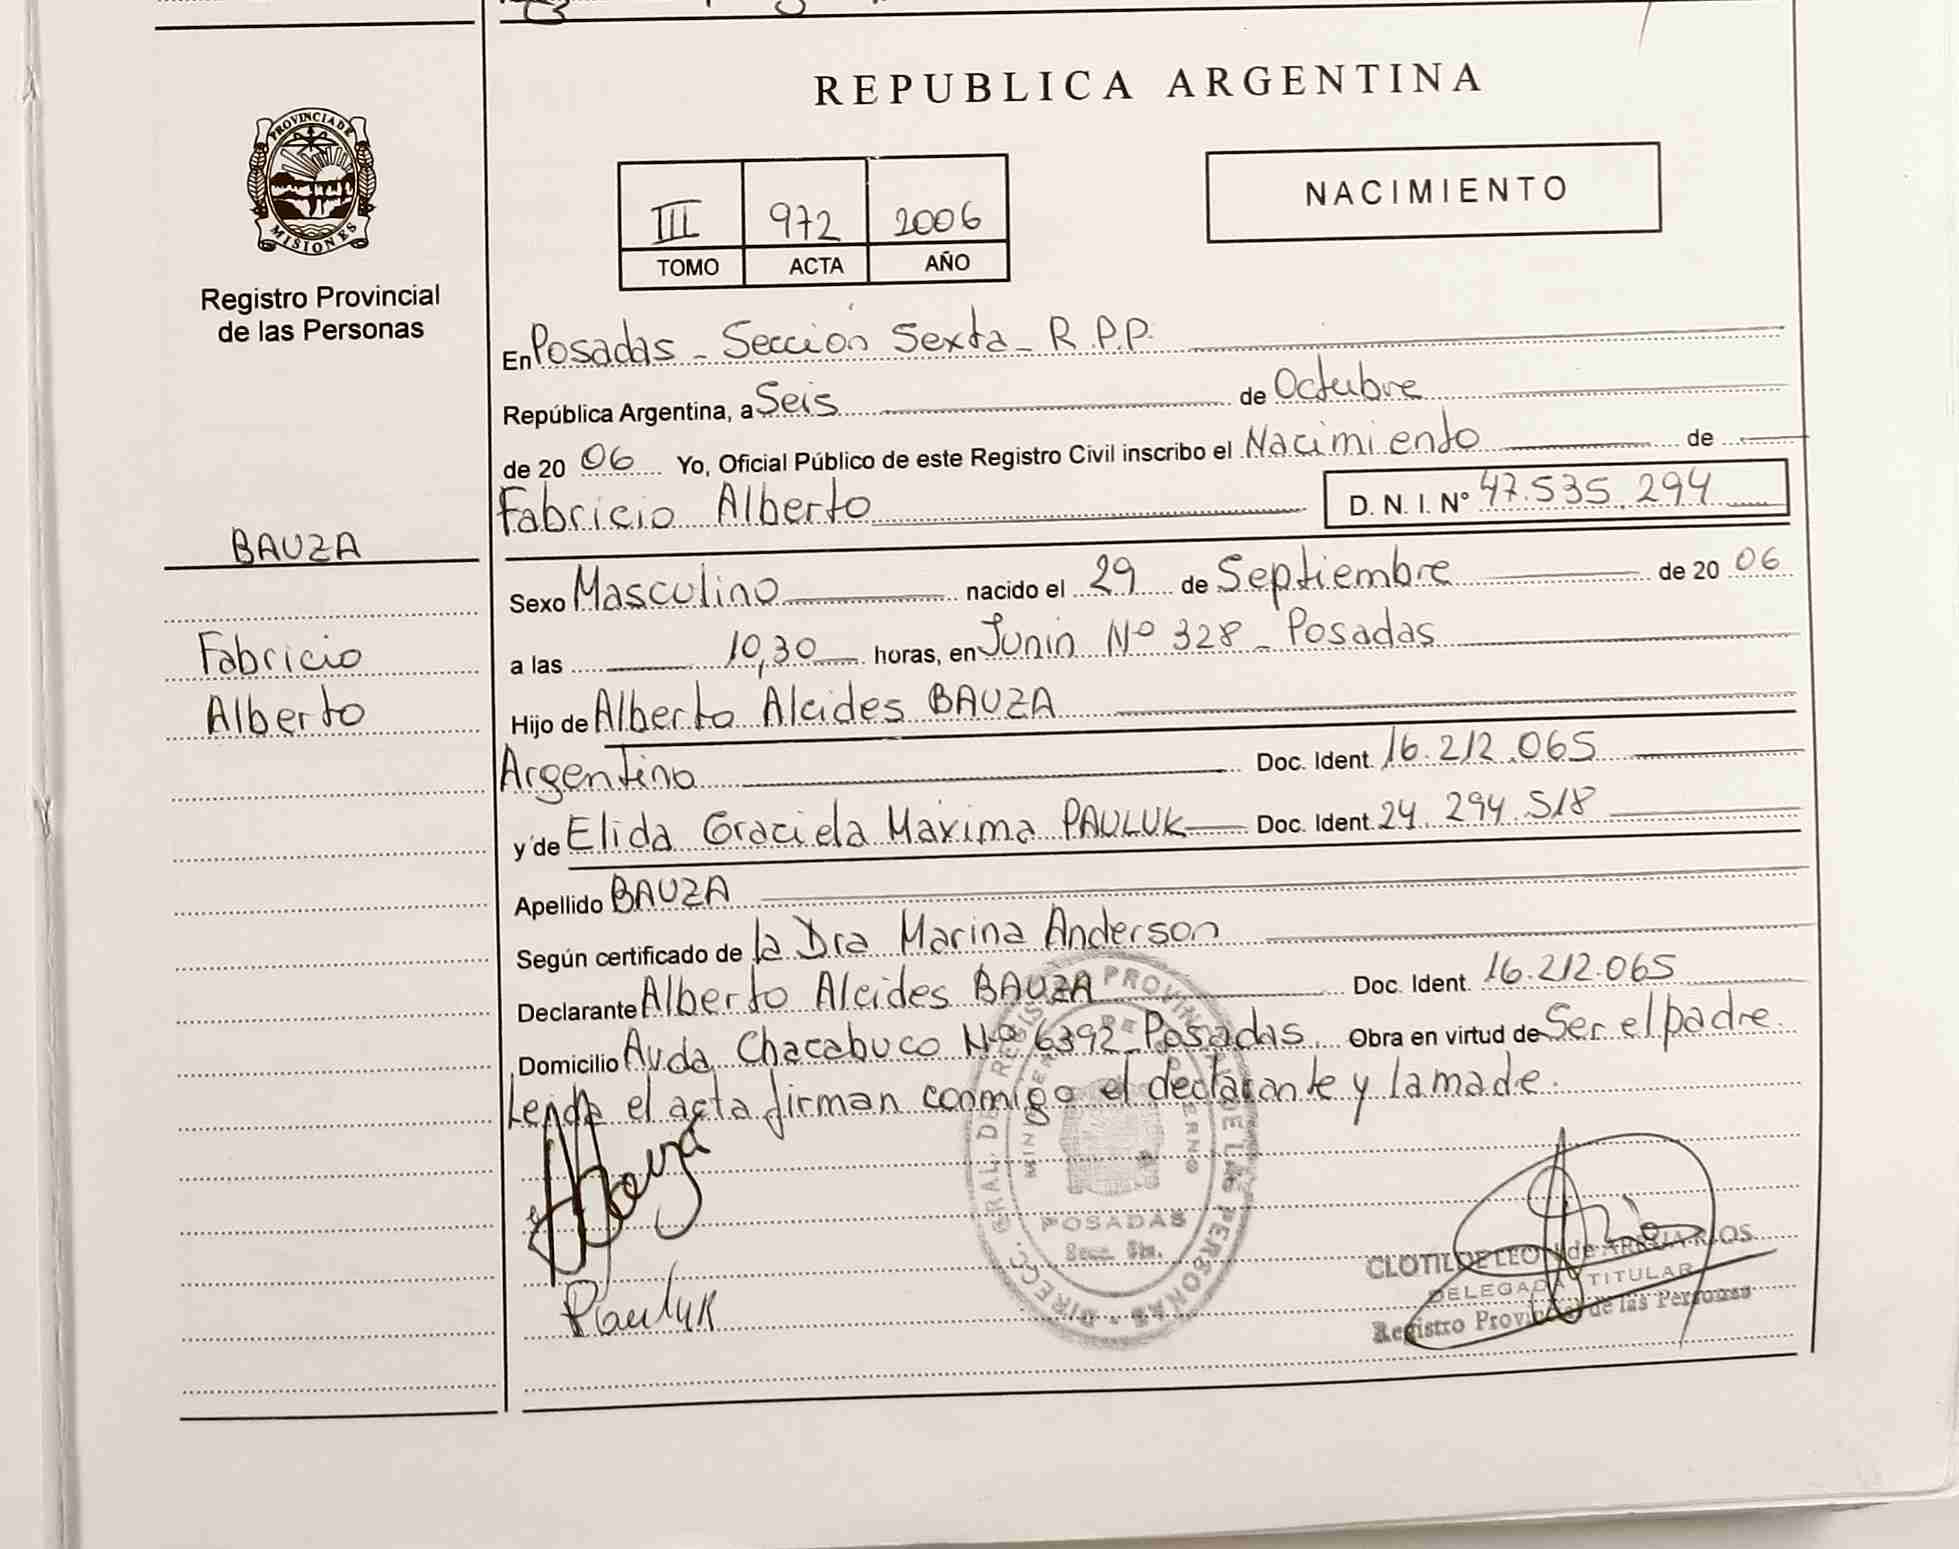 REPUBLICA ARGENTINA
PROVINCIA DE
MISIONES
Registro Provincial
de las Personas
III 972 2006
TOMO ACTA AÑO
NACIMIENTO
En Posadas - Sección Sexta - R.P.P.
República Argentina, a Seis de Octubre
de 20 06 Yo, Oficial Público de este Registro Civil inscribo el Nacimiento de
Fabricio Alberto D. N. I. Nº 47.535.294
BAUZA
Fabricio
Alberto
Sexo Masculino nacido el 29 de Septiembre de 20 06
a las 10,30 horas, en Junin Nº 328 - Posadas
Hijo de Alberto Alcides BAUZA
Argentino Doc. Ident. 16.212.065
y de Elida Graciela Máxima PAULUK Doc. Ident. 24.294.518
Apellido BAUZA
Según certificado de la Dra Marina Anderson
Declarante Alberto Alcides BAUZA Doc. Ident. 16.212.065
Domicilio Avda. Chacabuco Nº 6392 - Posadas. Obra en virtud de Ser el padre.
Leida el acta firman conmigo el declarante y la made.
Bauza
Pauluk
DIRECC. GRAL. DE REGISTRO PROVINCIAL DE LAS PERSONAS
POSADAS
Secc. 6ta.
DELEGADA TITULAR
Registro Provincial de las Personas